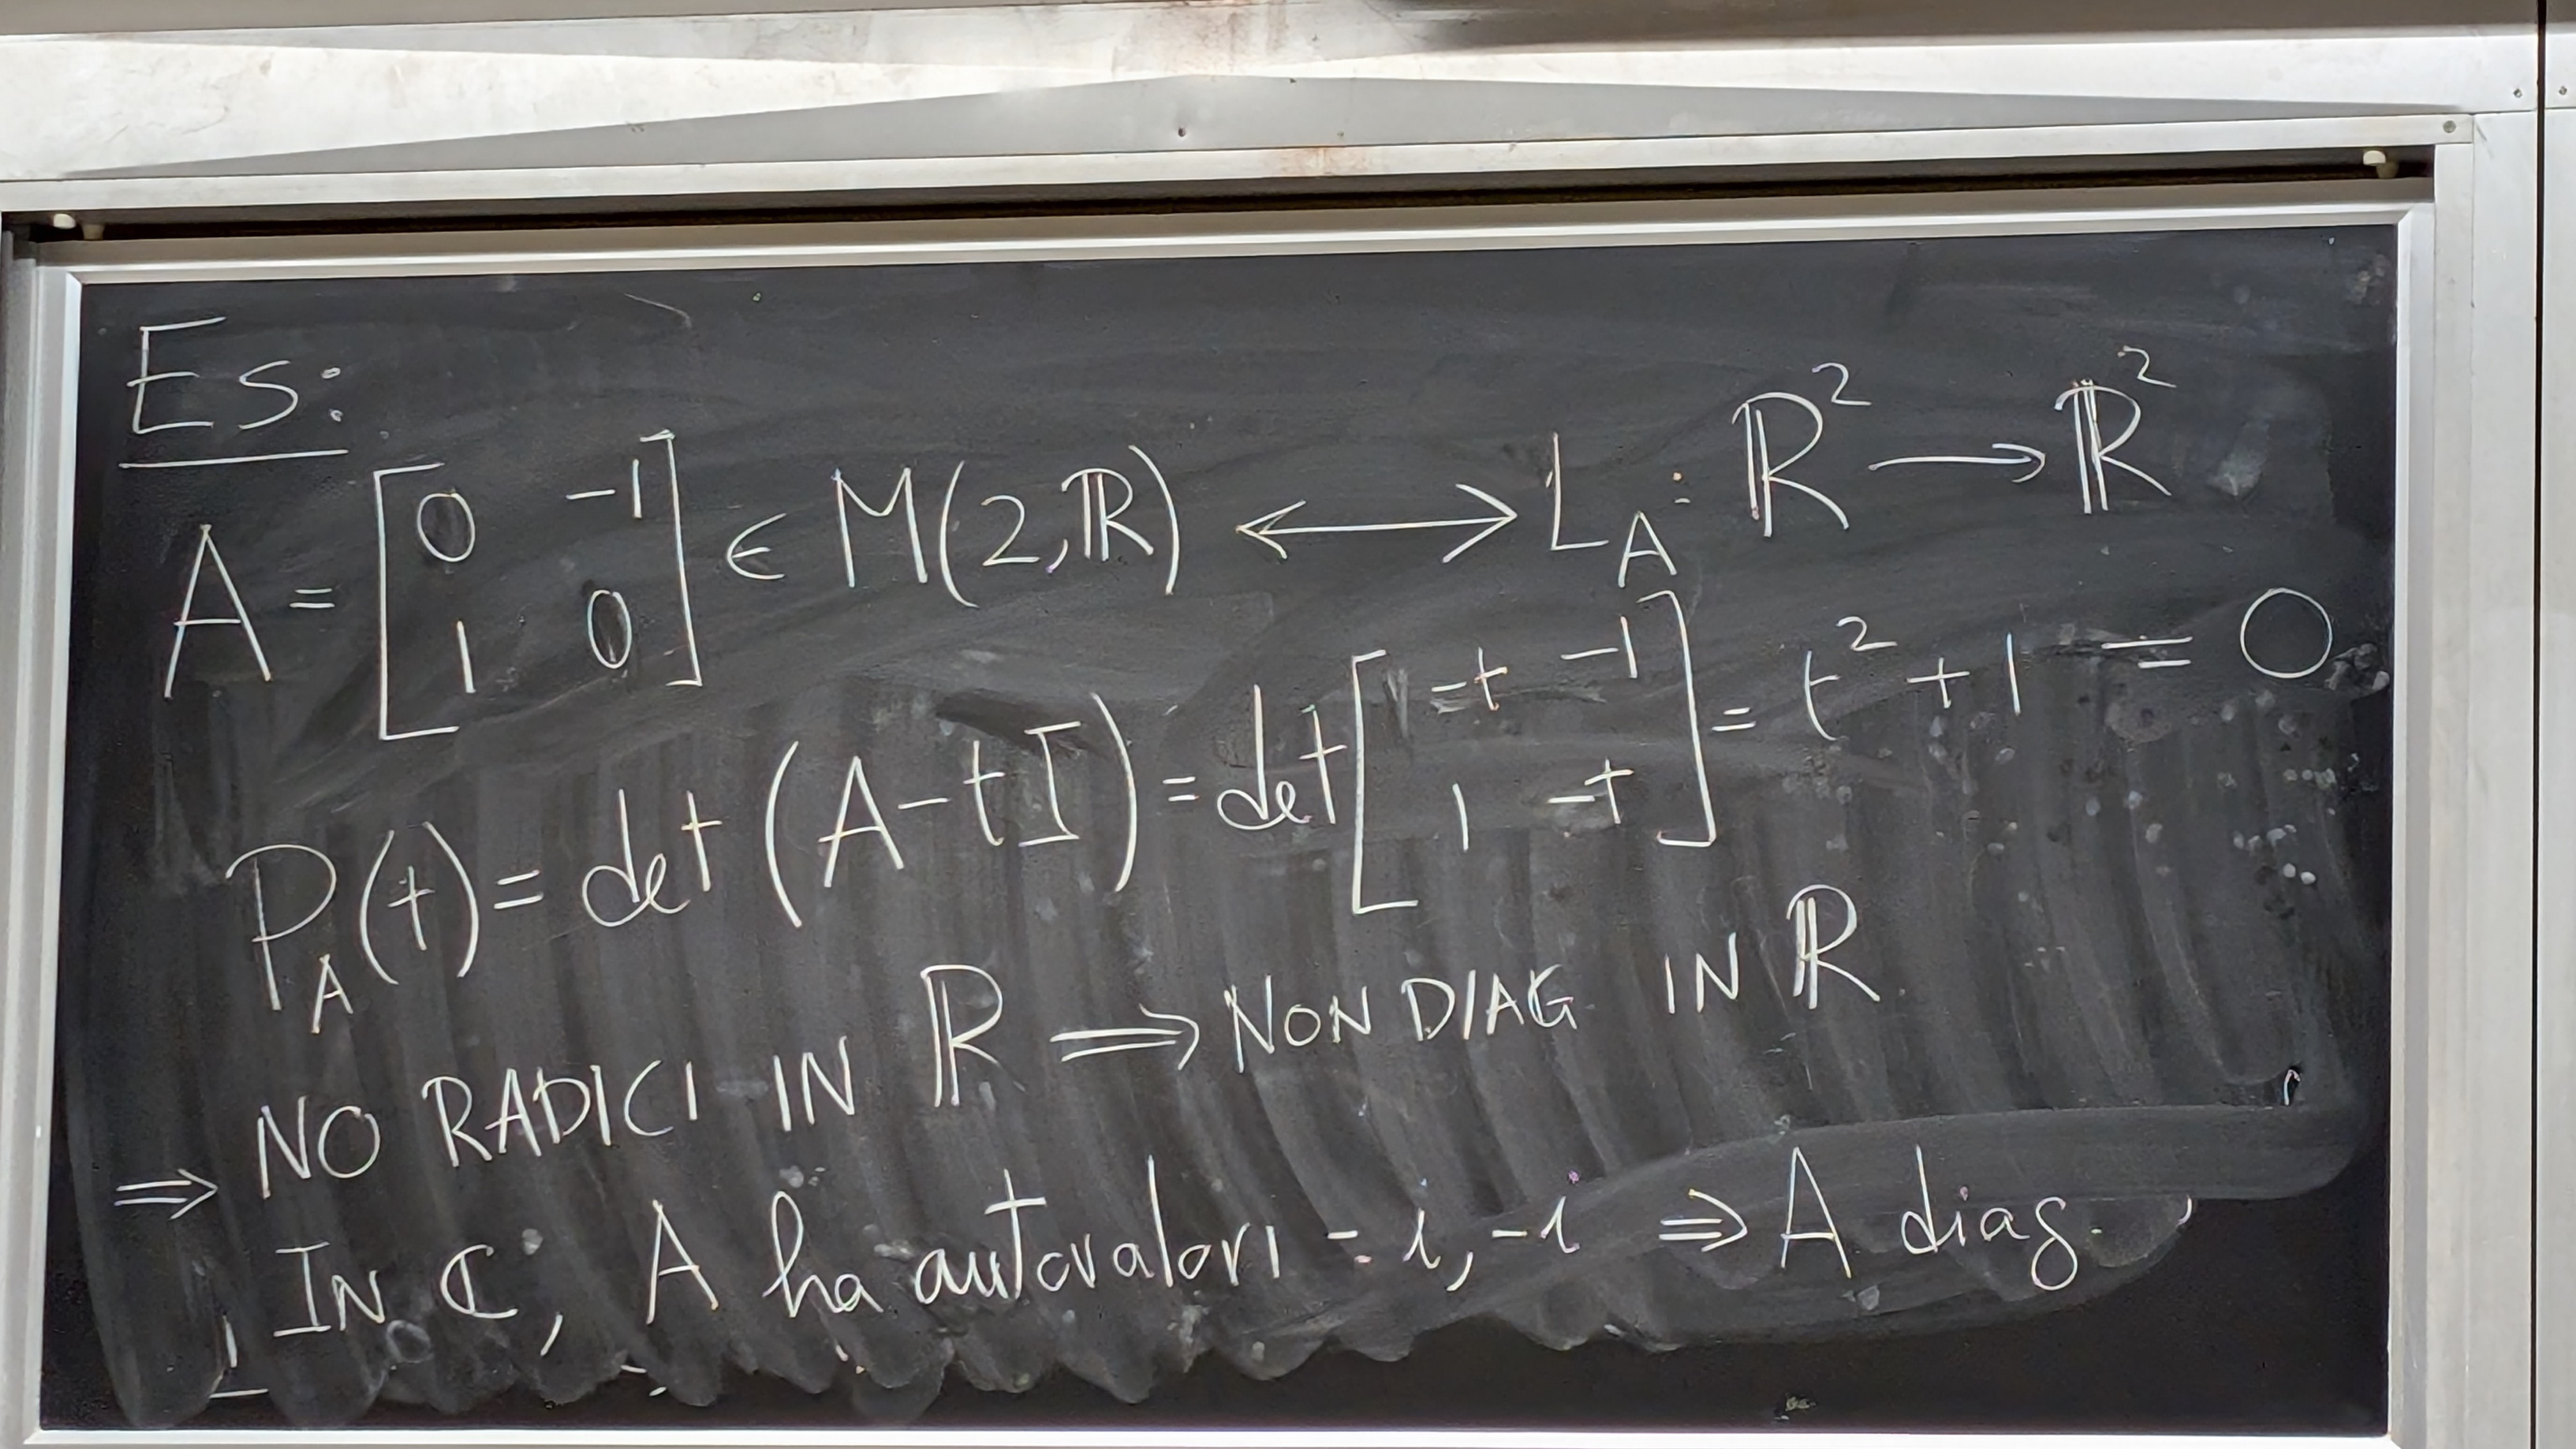 Es:
A = [0 -1; 1 0] ∈ M(2,ℝ) ⟷ L_A: ℝ² → ℝ²
P_A(t) = det (A-tI) = det [-t -1; 1 -t] = t² + 1 = 0
⇒ NO RADICI IN ℝ ⇒ NON DIAG IN ℝ.
IN ℂ, A ha autovalori = i, -i ⇒ A diag.